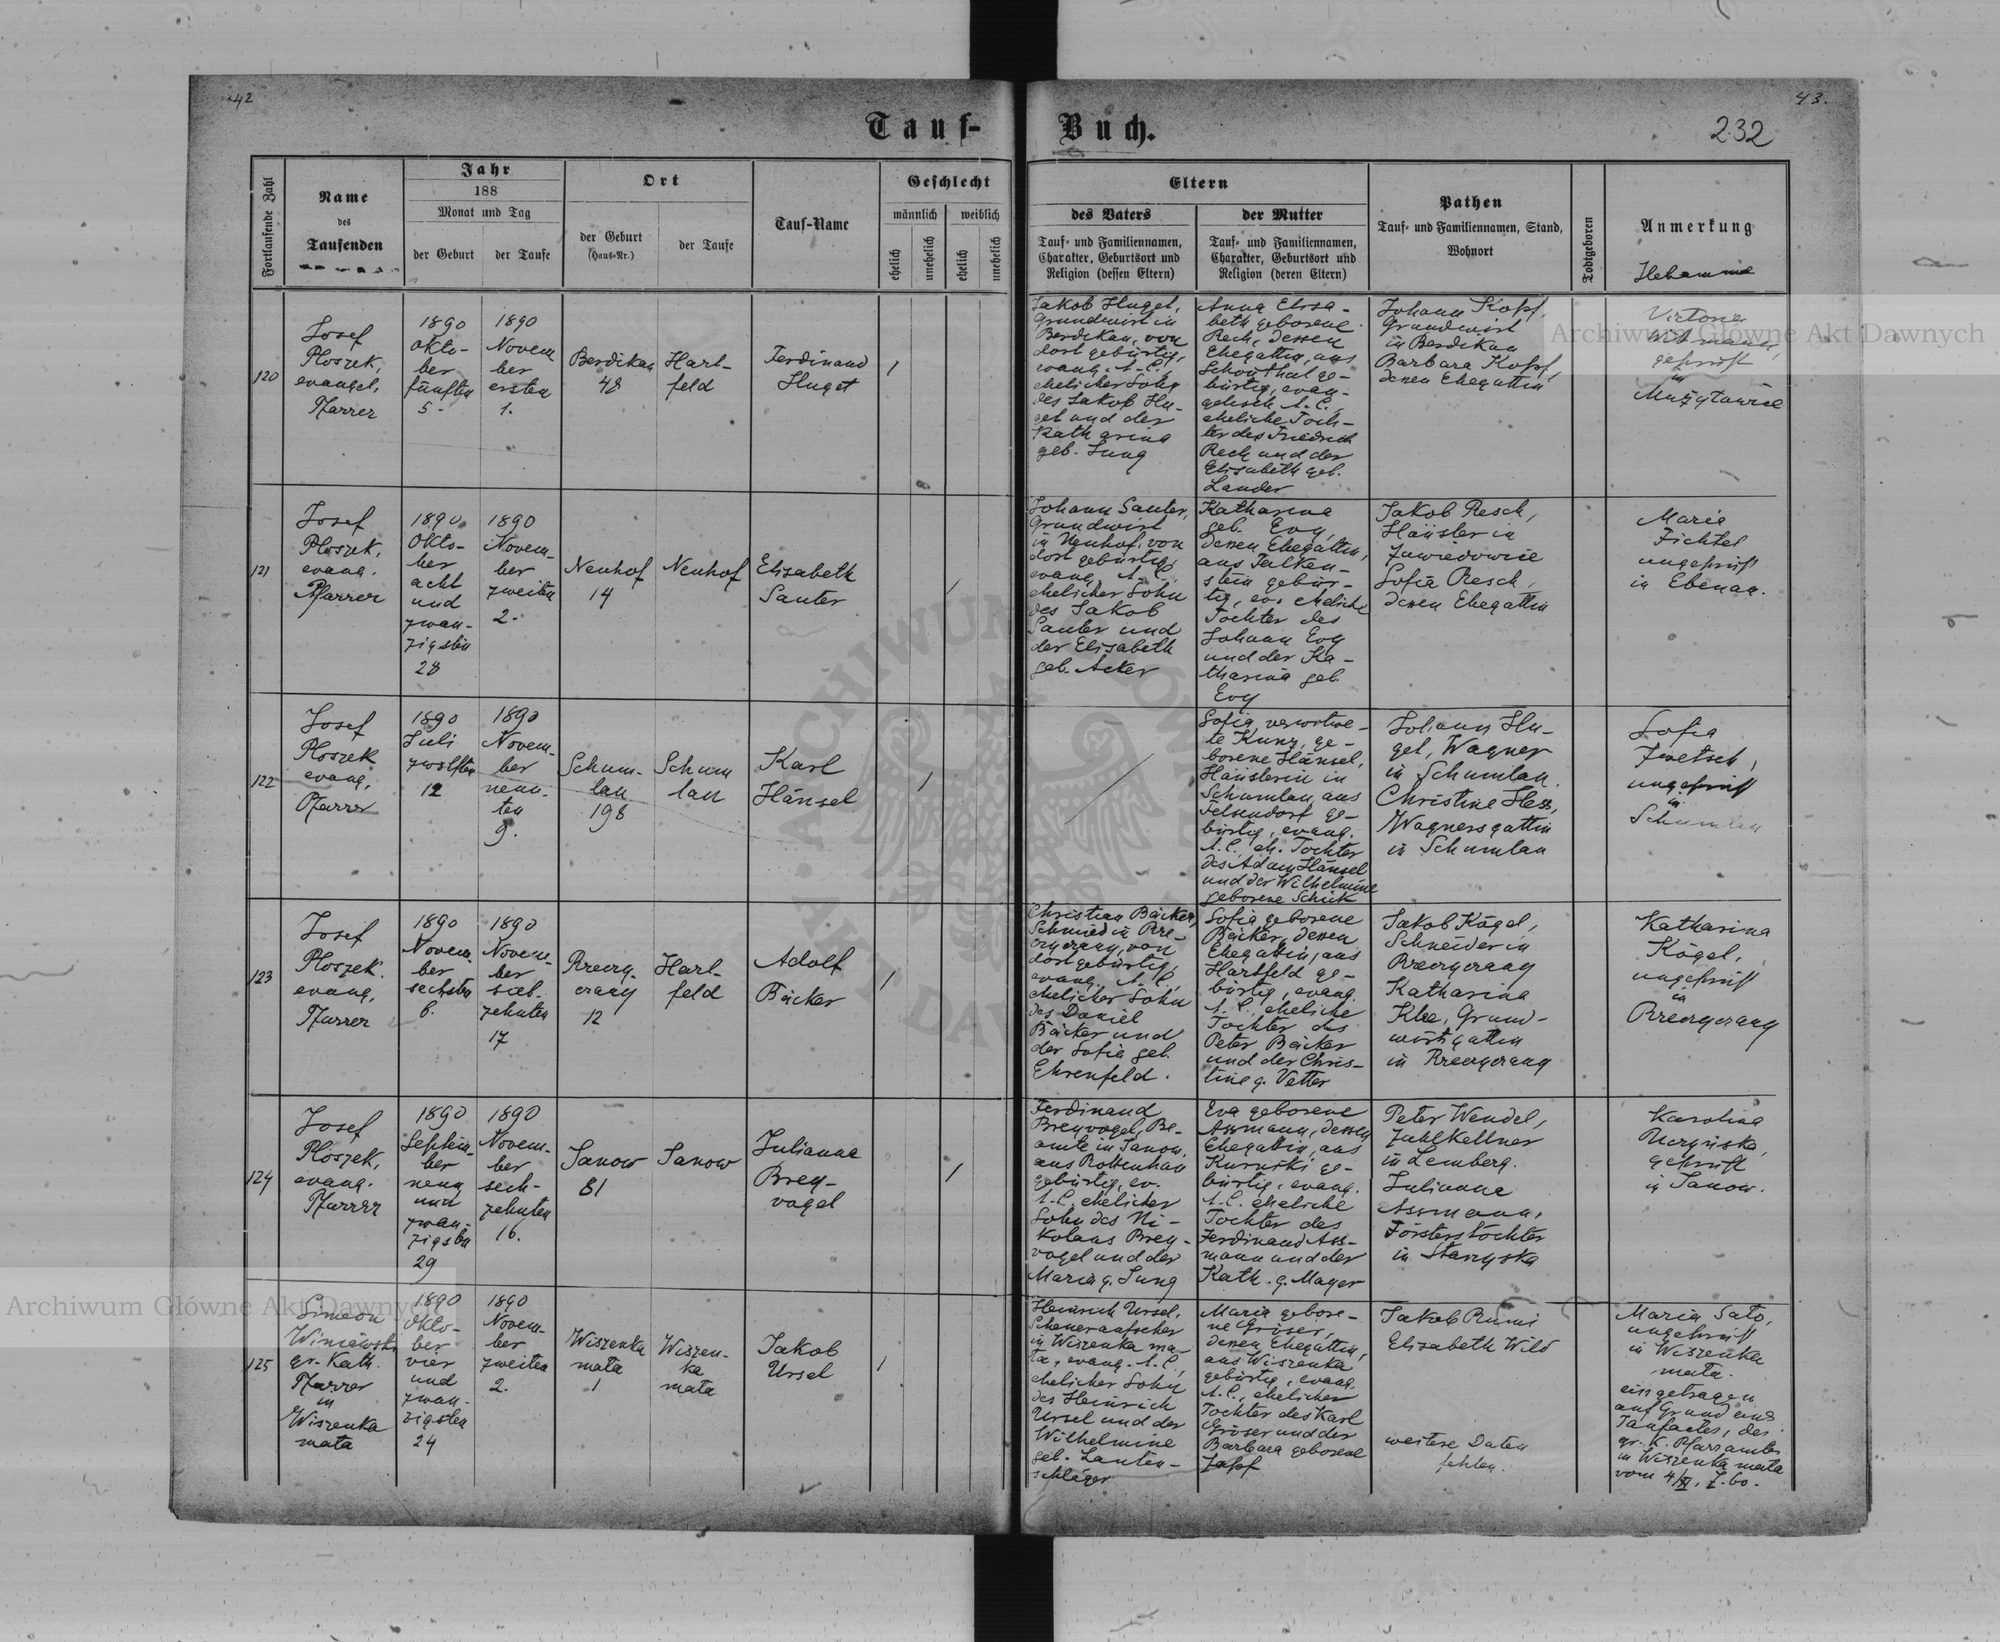 42
43.
Tauf-
Buch.
232
Fortlaufende Zahl
Name
des
Taufenden
Jahr
188
Monat und Tag
der Geburt
der Taufe
Ort
der Geburt
(Haus-Nr.)
der Taufe
Tauf-Name
Geschlecht
männlich
weiblich
ehelich
unehelich
ehelich
unehelich
Eltern
des Vaters
Tauf- und Familiennamen,
Charakter, Geburtsort und
Religion (dessen Eltern)
der Mutter
Tauf- und Familiennamen,
Charakter, Geburtsort und
Religion (deren Eltern)
Pathen
Tauf- und Familiennamen, Stand,
Wohnort
Todtgeboren
Anmerkung
Hebamme
120
Josef
Ploszek,
evangel.
Pfarrer
1890
Okto-
ber
fünften
5.
1890
Novem
ber
ersten
1.
Berdikau
48
Hart-
feld
Ferdinand
Huget
1
Jakob Huget,
Grundwirt in
Berdikau, von
dort gebürtig,
evang. A. C.,
ehelicher Sohn
des Jakob Hu-
get und der
Katharina
geb. Jung
Anna Elisa-
beth geborene
Rech, dessen
Ehegattin, aus
Schönthal ge-
bürtig, evan-
gelisch A. C.,
eheliche Toch-
ter des Friedrich
Rech und der
Elisabeth geb.
Lander
Johann Kopf,
Grundwirt
in Berdikau
Barbara Kopf,
denen Ehegattin
geprüft
in
Mużyłowice
121
Josef
Ploszek,
evang.
Pfarrer
1890
Okto-
ber
acht
und
zwan-
zigsten
28
1890
Novem-
ber
zweiten
2.
Neuhof
14
Neuhof
Elisabeth
Sauter
/
Johann Sauter,
Grundwirt
in Neuhof, von
dort gebürtig
evang. A. C.,
ehelicher Sohn
des Jakob
Sauter und
der Elisabeth
geb. Acker
Katharina
geb. Evy,
denen Ehegattin,
aus Falken-
stein gebür-
tig, ev. eheliche
Tochter des
Johann Evy
und der Ka-
tharina geb.
Evy
Jakob Resch,
Häusler in
Zawiedowice
Sofia Resch,
denen Ehegattin
Maria
Fichtel
ungeprüft
in Ebenau.
122
Josef
Ploszek
evang.
Pfarrer
1890
Juli
zwölften
12
1890
Novem-
ber
neun-
ten
9.
Schum-
lau
198
Schum
lau
Karl
Hänsel
/
Sofia, verwitwe-
te Kunz, ge-
borene Hänsel,
Häuslerin in
Schumlau aus
Felsendorf ge-
bürtig, evang.
A. C., eh. Tochter
des Adam Hänsel
und der Wilhelmine
geborene Schick
Johann Hu-
get, Wagner
in Schumlau.
Christine Hess,
Wagnersgattin
in Schumlau
Sofia
Zwetsch,
ungeprüft
in
Schumlau
123
Josef
Ploszek
evang.
Pfarrer
1890
Novem-
ber
sechsten
6.
1890
Novem-
ber
sieb-
zehnten
17
12
Hart-
feld
Adolf
Bäcker
/
Christian Bäcker,
Schmied in
dort gebürtig,
evang. A. C.,
ehelicher Sohn
des Daniel
Bäcker und
der Sofia geb.
Ehrenfeld.
Sofia geborene
Bäcker, denen
Ehegattin, aus
Hartfeld ge-
bürtig, evang.
A. C., eheliche
Tochter des
Peter Bäcker
und der Chris-
tine g. Vetter
Jakob Kögel,
Schneider in
Katharina
Klee, Grund-
wirtsgattin
in
Katharina
Kögel,
ungeprüft
in
124
Josef
Ploszek,
evang.
Pfarrer
1890
Septem-
ber
neun
und
zwan-
zigsten
29
1890
Novem-
ber
sech-
zehnten
16.
Janow
81
Janow
Julianna
Brey-
vogel
/
Ferdinand
Breyvogel, Be-
amte in Janow,
aus Rottenhan
gebürtig, ev.
A. C. ehelicher
Sohn des Ni-
kolaus Brey-
vogel und der
Maria g. Jung
Eva geborene
Assmann, dessen
Ehegattin, aus
Kurniki ge-
bürtig, evang.
A. C. eheliche
Tochter des
Ferdinand Ass-
mann und der
Kath. g. Mayer
Peter Wendel,
Zahlkellner
in Lemberg.
Julianna
Assmann,
Försterstochter
in Starzyska
Karolina
geprüft
in Janow.
125
Simeon
Winiawski
gr.-Kath.
Pfarrer
in
Wiszenka
mała
1890
Okto-
ber
vier
und
zwan-
zigsten
24
1890
Novem-
ber
zweiten
2.
Wiszenka
mała
1
Wiszen-
ka
mała
Jakob
Ursel
/
Heinrich Ursel,
Scheueraufseher
in Wiszenka ma-
ła, evang. A. C.,
ehelicher Sohn
des Heinrich
Ursel und der
Wilhelmine
geb. Lauten-
schläger
Maria gebore-
ne Gröser,
denen Ehegattin,
aus Wiszenka
gebürtig, evang.
A. C., ehelicher
Tochter des Karl
Gröser und der
Barbara geborene
Zapf
Jakob Rumi
Elisabeth Wild
weitere Daten
fehlen.
Maria Sato,
ungeprüft
in Wiszenka
mała.
eingetragen
auf Grund eines
Taufactes, des
gr. K. Pfarramtes
in Wiszenka mała
vom 4/XI, Z. 60.
Archiwum Główne Akt Dawnych
Archiwum Główne Akt Dawnych